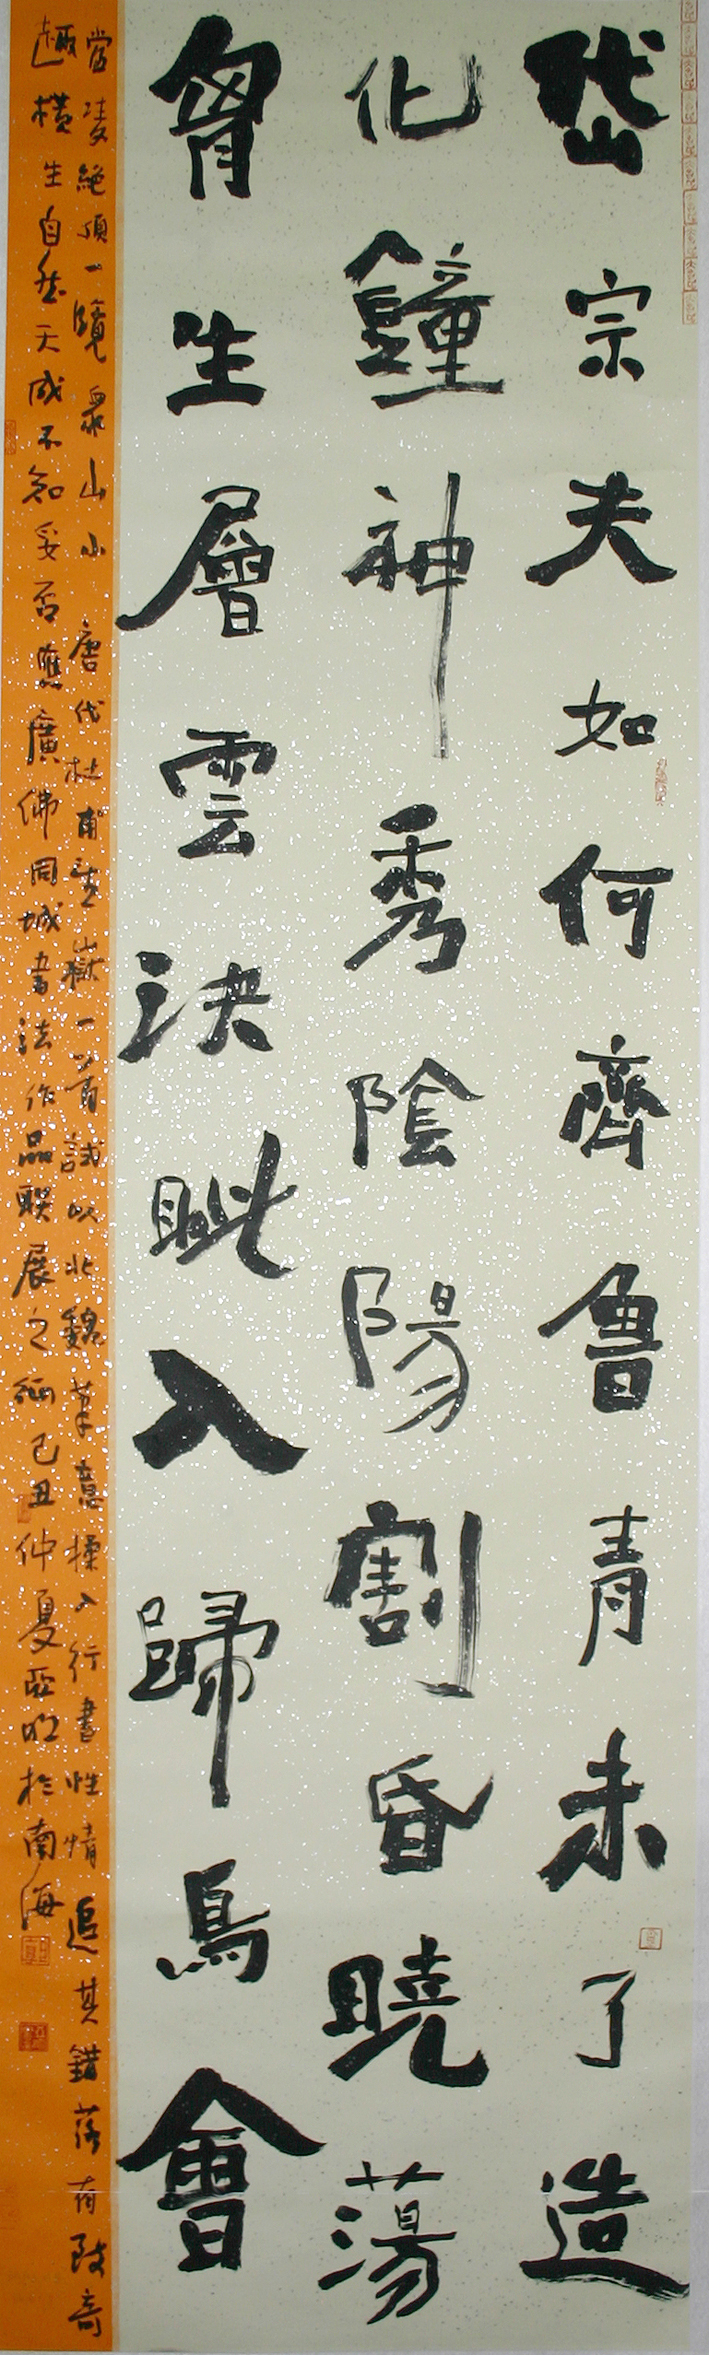 岱宗夫如何齊魯青未了造
化鐘神秀陰陽割昏曉蕩
胷生層雲決眦入歸鳥會
當凌絕頂一覽眾山小 唐代杜甫望嶽一首試以北魏筆意揉入行書性情追其錯落有致奇
趣橫生自然天成不知妥否應廣佛同城書法作品联展之徵己丑仲夏亞於南海